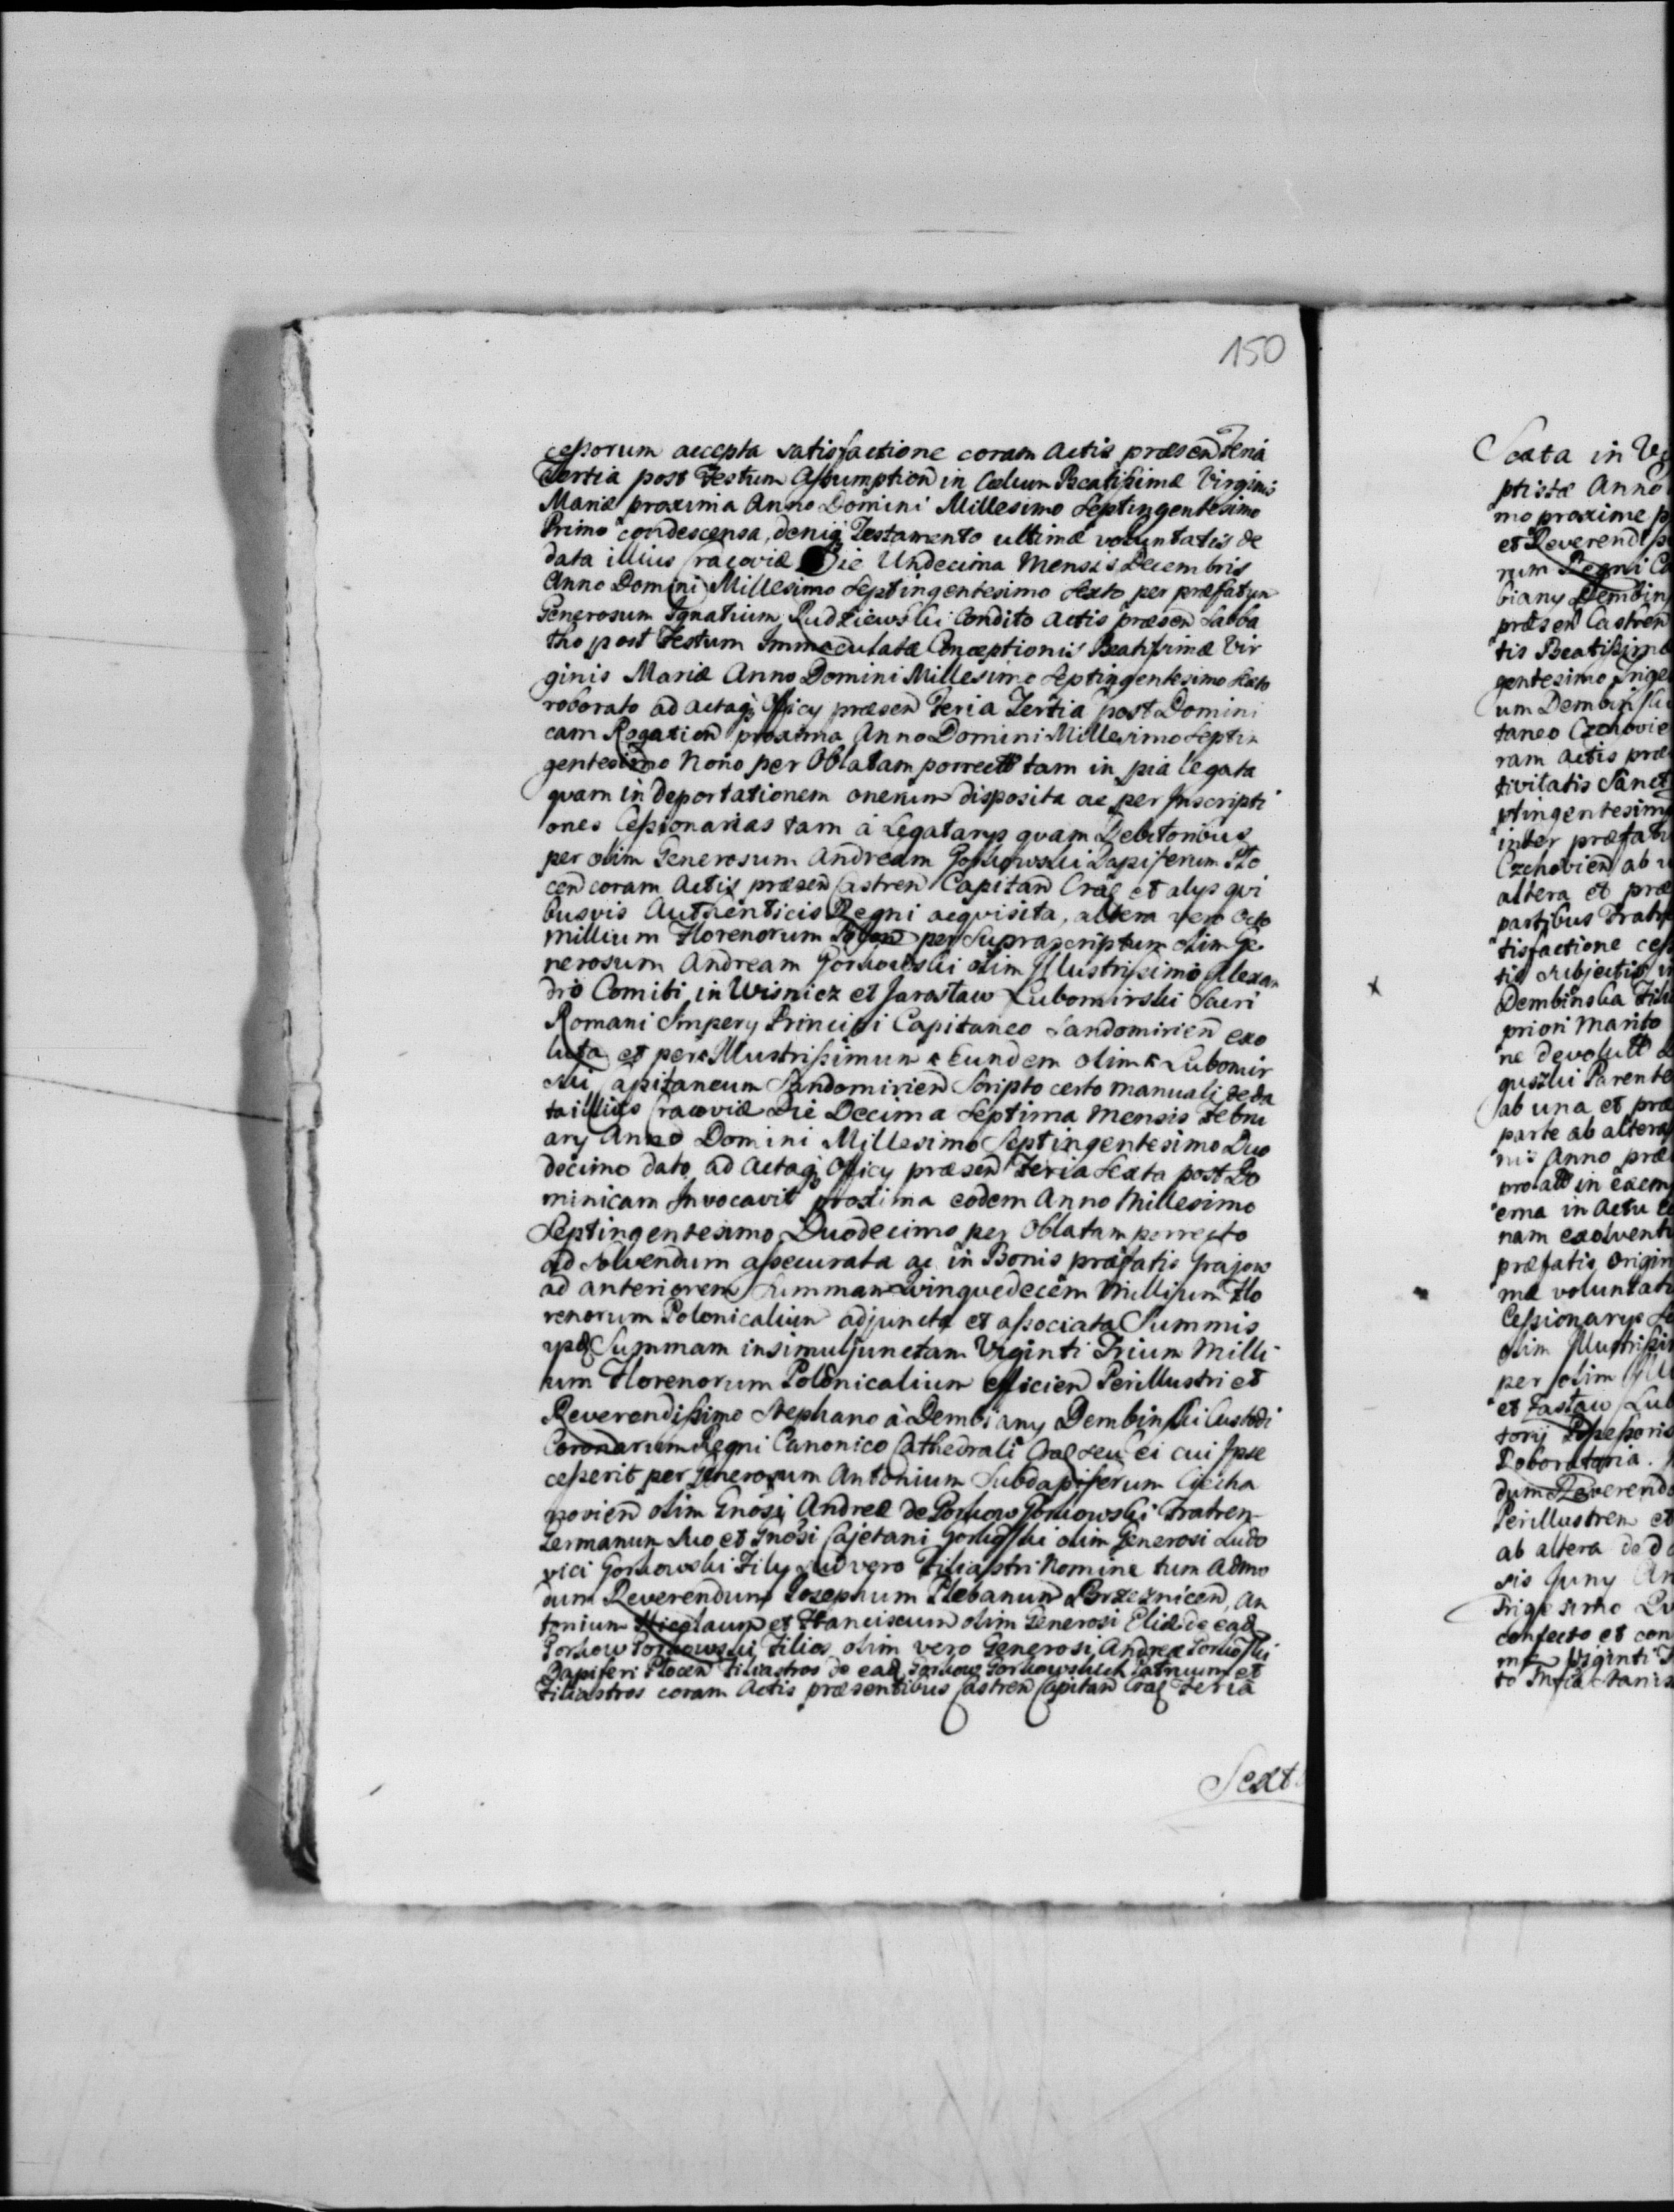 150
cessorum accepta satisfactione coram Actis præsen Feria
Tertia post Festum Assumption in Cœlum Beatissimæ Virginis
Mariæ proxima Anno Domini Millesimo Septingentesimo
Primo condescensa, deniq Testamento ultimæ voluntatis de
data illius Cracoviæ Die Undecima Mensis Decembris
Anno Domini Millesimo Septingentesimo Sexto per præfatum
Generosum Ignatium Rudziewski Condito Actis præsen Sabba
tho post Festum Immaculatæ Conceptionis Beatissimæ Vir
ginis Mariæ Anno Domini Millesimo Septingentesimo Sexto
roborato ad Actaq Officy præsen Feria Tertia post Domini
cam Rogation proxima Anno Domini Millesimo Septin
gentesimo Nono per Oblatam porrect tam in pia legata
quam in deportationem onerum disposita ac per Inscripti
ones Cessionarias tam à Legatarys quam Debitoribus
per olim Generosum Andream Gorkowski Dapiferum Plo
cen coram Actis præsen Castren Capitan Crac et alys qui
busvis Authenticis Regni acquisita, altera vero Octo
Millium Florenorum Polon per Suprascriptum olim Ge
nerosum Andream Gorkowski olim Illustrissimo Alexan
dro Comiti in Wisnicz et Jarosław Lubomirski Sacri
Romani Impery Principi Capitaneo Sandomirien exo
luta et per Illustrissimum Eundem olim Lubomir
ski Capitaneum Sandomirien Scripto certo manuali de da
ta illius Cracoviæ Die Decima Septima Mensis Febru
ary Anno Domini Millesimo Septingentesimo Duo
decimo dato ad Actaq Officy præsen Feria Sexta post Do
minicam Invocavit proxima eodem Anno Millesimo
Septingentesimo Duodecimo per Oblatam porrecto
ad solvendum assecurata ac in Bonis præfatis Grajow
ad anteriorem Summam Quinquedecem Millium Flo
renorum Polonicalium adjuncta et associata Summis
Summam insimul junctam Viginti Trium Milli
um Florenorum Polonicalium efficien Perillustri et
Reverendissimo Stephano à Dembiany Dembinski Custodi
Coronarum Regni Canonico Cathedrali Crac seu Ei cui Ipse
cesserit per Generosum Antonium Subdapiferum Ciecha
novien olim Gnosi Andreæ de Gorkow Gorkowski Fratrem
Germanum Suo et Gnosi Cajetani Gorkowski olim Generosi Ludo
vici Gorkowski Fily Sui vero Filiastri Nomine tum Admo
dum Reverendum Josephum Plebanum Brzeznicen, An
tonium Nicolaum et Franciscum olim Generosi Eliæ de ead
Gorkow Gorkowski Filios olim vero Generosi Andreæ Gorkowski
Dapiferi Plocen Filiastros de ead Gorkow Gorkowskich Patruum et
Filiastros coram Actis præsentibus Castren Capitan Crac Feria
Sext
Sexta in
ptistæ Anno
mo proxime
et Reverend
rum Regni
biany Dembin
præsen Castren
tis Beatissimæ
gentesimo Trige
um Dembinski
taneo Czchovie
ram Actis præ
tivitatis Sanct
ptingentesimo
inter præfat
Czchovien ab
altera et præ
partibus Fratr
tisfactione
tis subjectis
Dembinska
priori Marito
ne devolut
Parente
ab una et præ
parte ab altera
nis Anno præ
in exem
ema in Actu
nam exolvent
præfatis Origin
mæ voluntati
Cessionarys
olim Illustrissi
per olim
et Zasław Lub
tory Possessoris
Roboratoria.
dum Reverendo
Perillustrem et
ab altera de
sis Juny
Trigesimo
confecto et con
Viginti
to